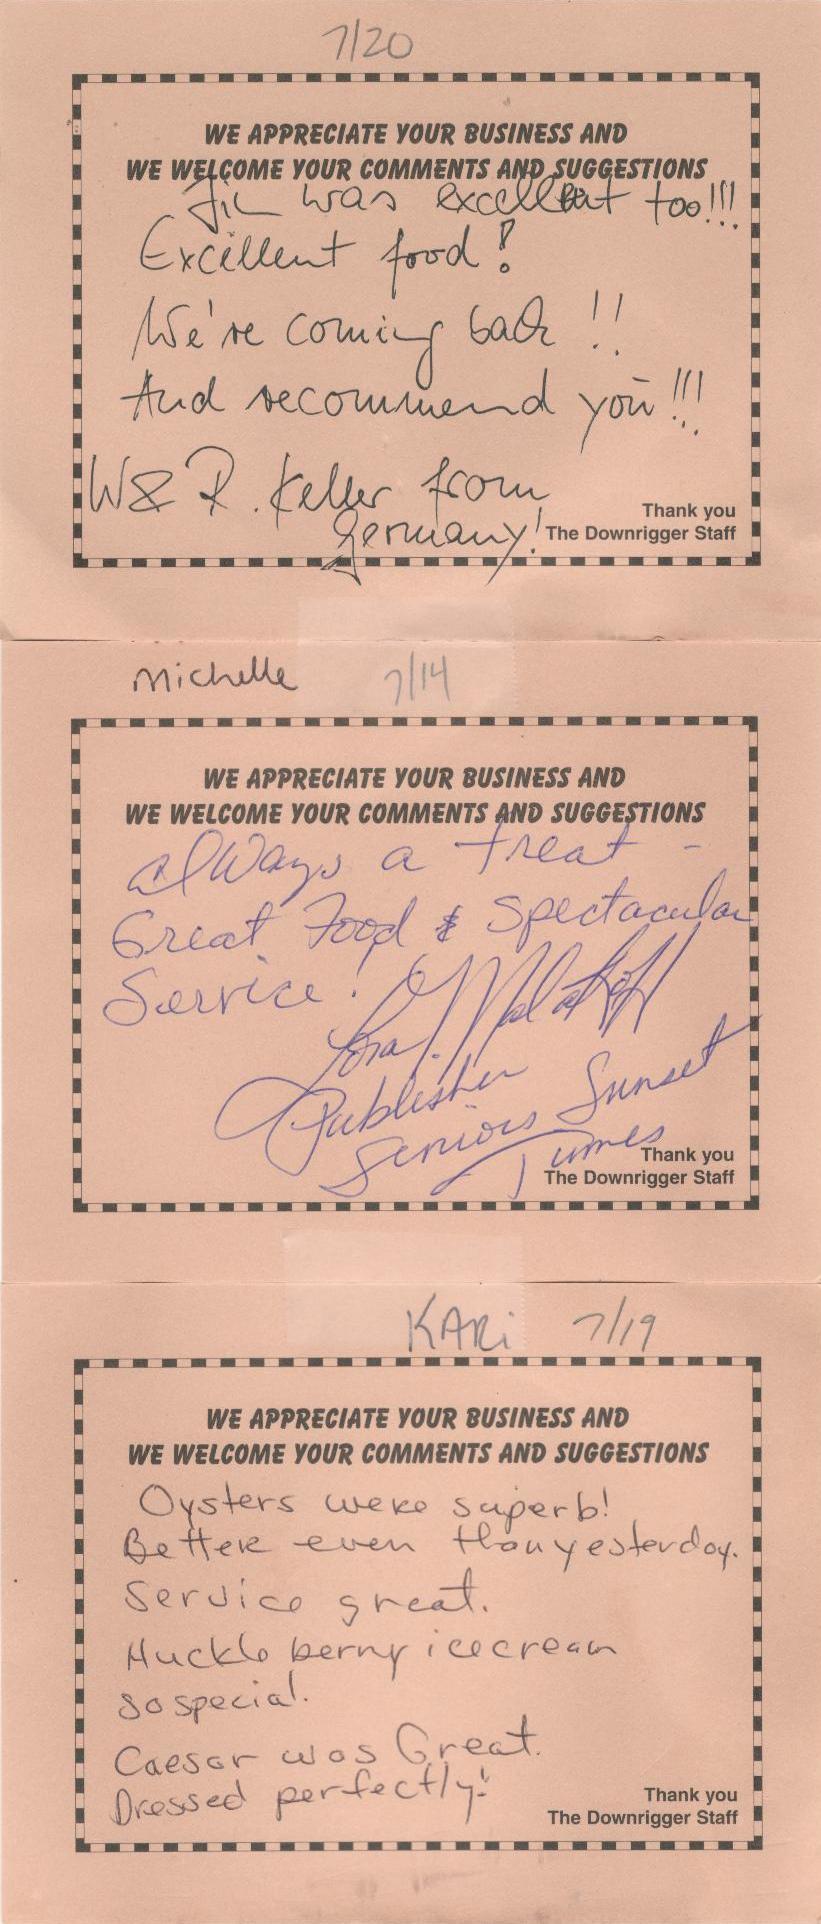 7/20
WE APPRECIATE YOUR BUSINESS AND
WE WELCOME YOUR COMMENTS AND SUGGESTIONS
was excellent too!!!
Excellent food!
We're coming back!!
And recommend you!!!
W & R. Keller from
Germany!
Thank you
The Downrigger Staff
Michelle 7/14
WE APPRECIATE YOUR BUSINESS AND
WE WELCOME YOUR COMMENTS AND SUGGESTIONS
always a treat -
Great Food & Spectacular
Service!
Publisher
Seniors Sunset
Times
Thank you
The Downrigger Staff
KARi 7/19
WE APPRECIATE YOUR BUSINESS AND
WE WELCOME YOUR COMMENTS AND SUGGESTIONS
Oysters were superb!
Better even than yesterday.
Service great.
Huckleberry icecream
so special.
Caesar was Great.
Dressed perfectly!
Thank you
The Downrigger Staff